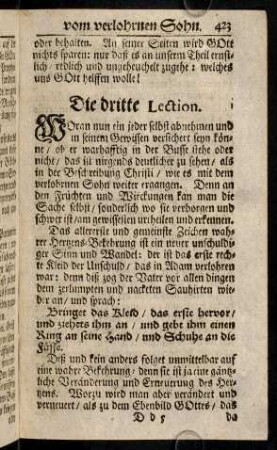 vom verlohrnen Sohn. 423
oder behalten. An seiner Seiten wird GOtt
nichts sparen: nur daß es an unserm Theil ernst-
lich / redlich und unheuchelt zugehe: welches
uns GOtt helffen wolle!
Die dritte Lection.
WOran nun ein jeder selbst abnehmen und
in seinem Gewissen versichert seyn kön-
ne / ob er warhafftig in der Busse stehe oder
nicht / das ist nirgends deutlicher zu sehen / als
in der Beschreibung Christi / wie es mit dem
verlohrnen Sohn weiter ergangen. Denn an
den Früchten und Würckungen kan man die
Sache selbst / sonderlich wo sie verborgen und
schwer ist / am gewissesten urtheilen und erkennen.
Das allererste und gemeinste Zeichen wah-
rer Hertzens-Bekehrung ist ein neuer unschuldi-
ger Sinn und Wandel: der ist das erste rech-
te Kleid der Unschuld / das in Adam verlohren
war: denn diß zog der Vater vor allen dingen
dem zerlumpten und nackten Sauhirten wie-
der an / und sprach:
Bringet das Kleid / das erste hervor /
und ziehets ihm an / und gebt ihm einen
Ring an seine Hand / und Schuhe an die
Füsse.
Diß und kein anders folget unmittelbar auf
eine wahre Bekehrung / denn sie ist ja eine gäntz-
liche Veränderung und Erneuerung des Her-
tzens. Worzu wird man aber verändert und
verneuert / als zu dem Ebenbild GOttes / das
D d 5 da